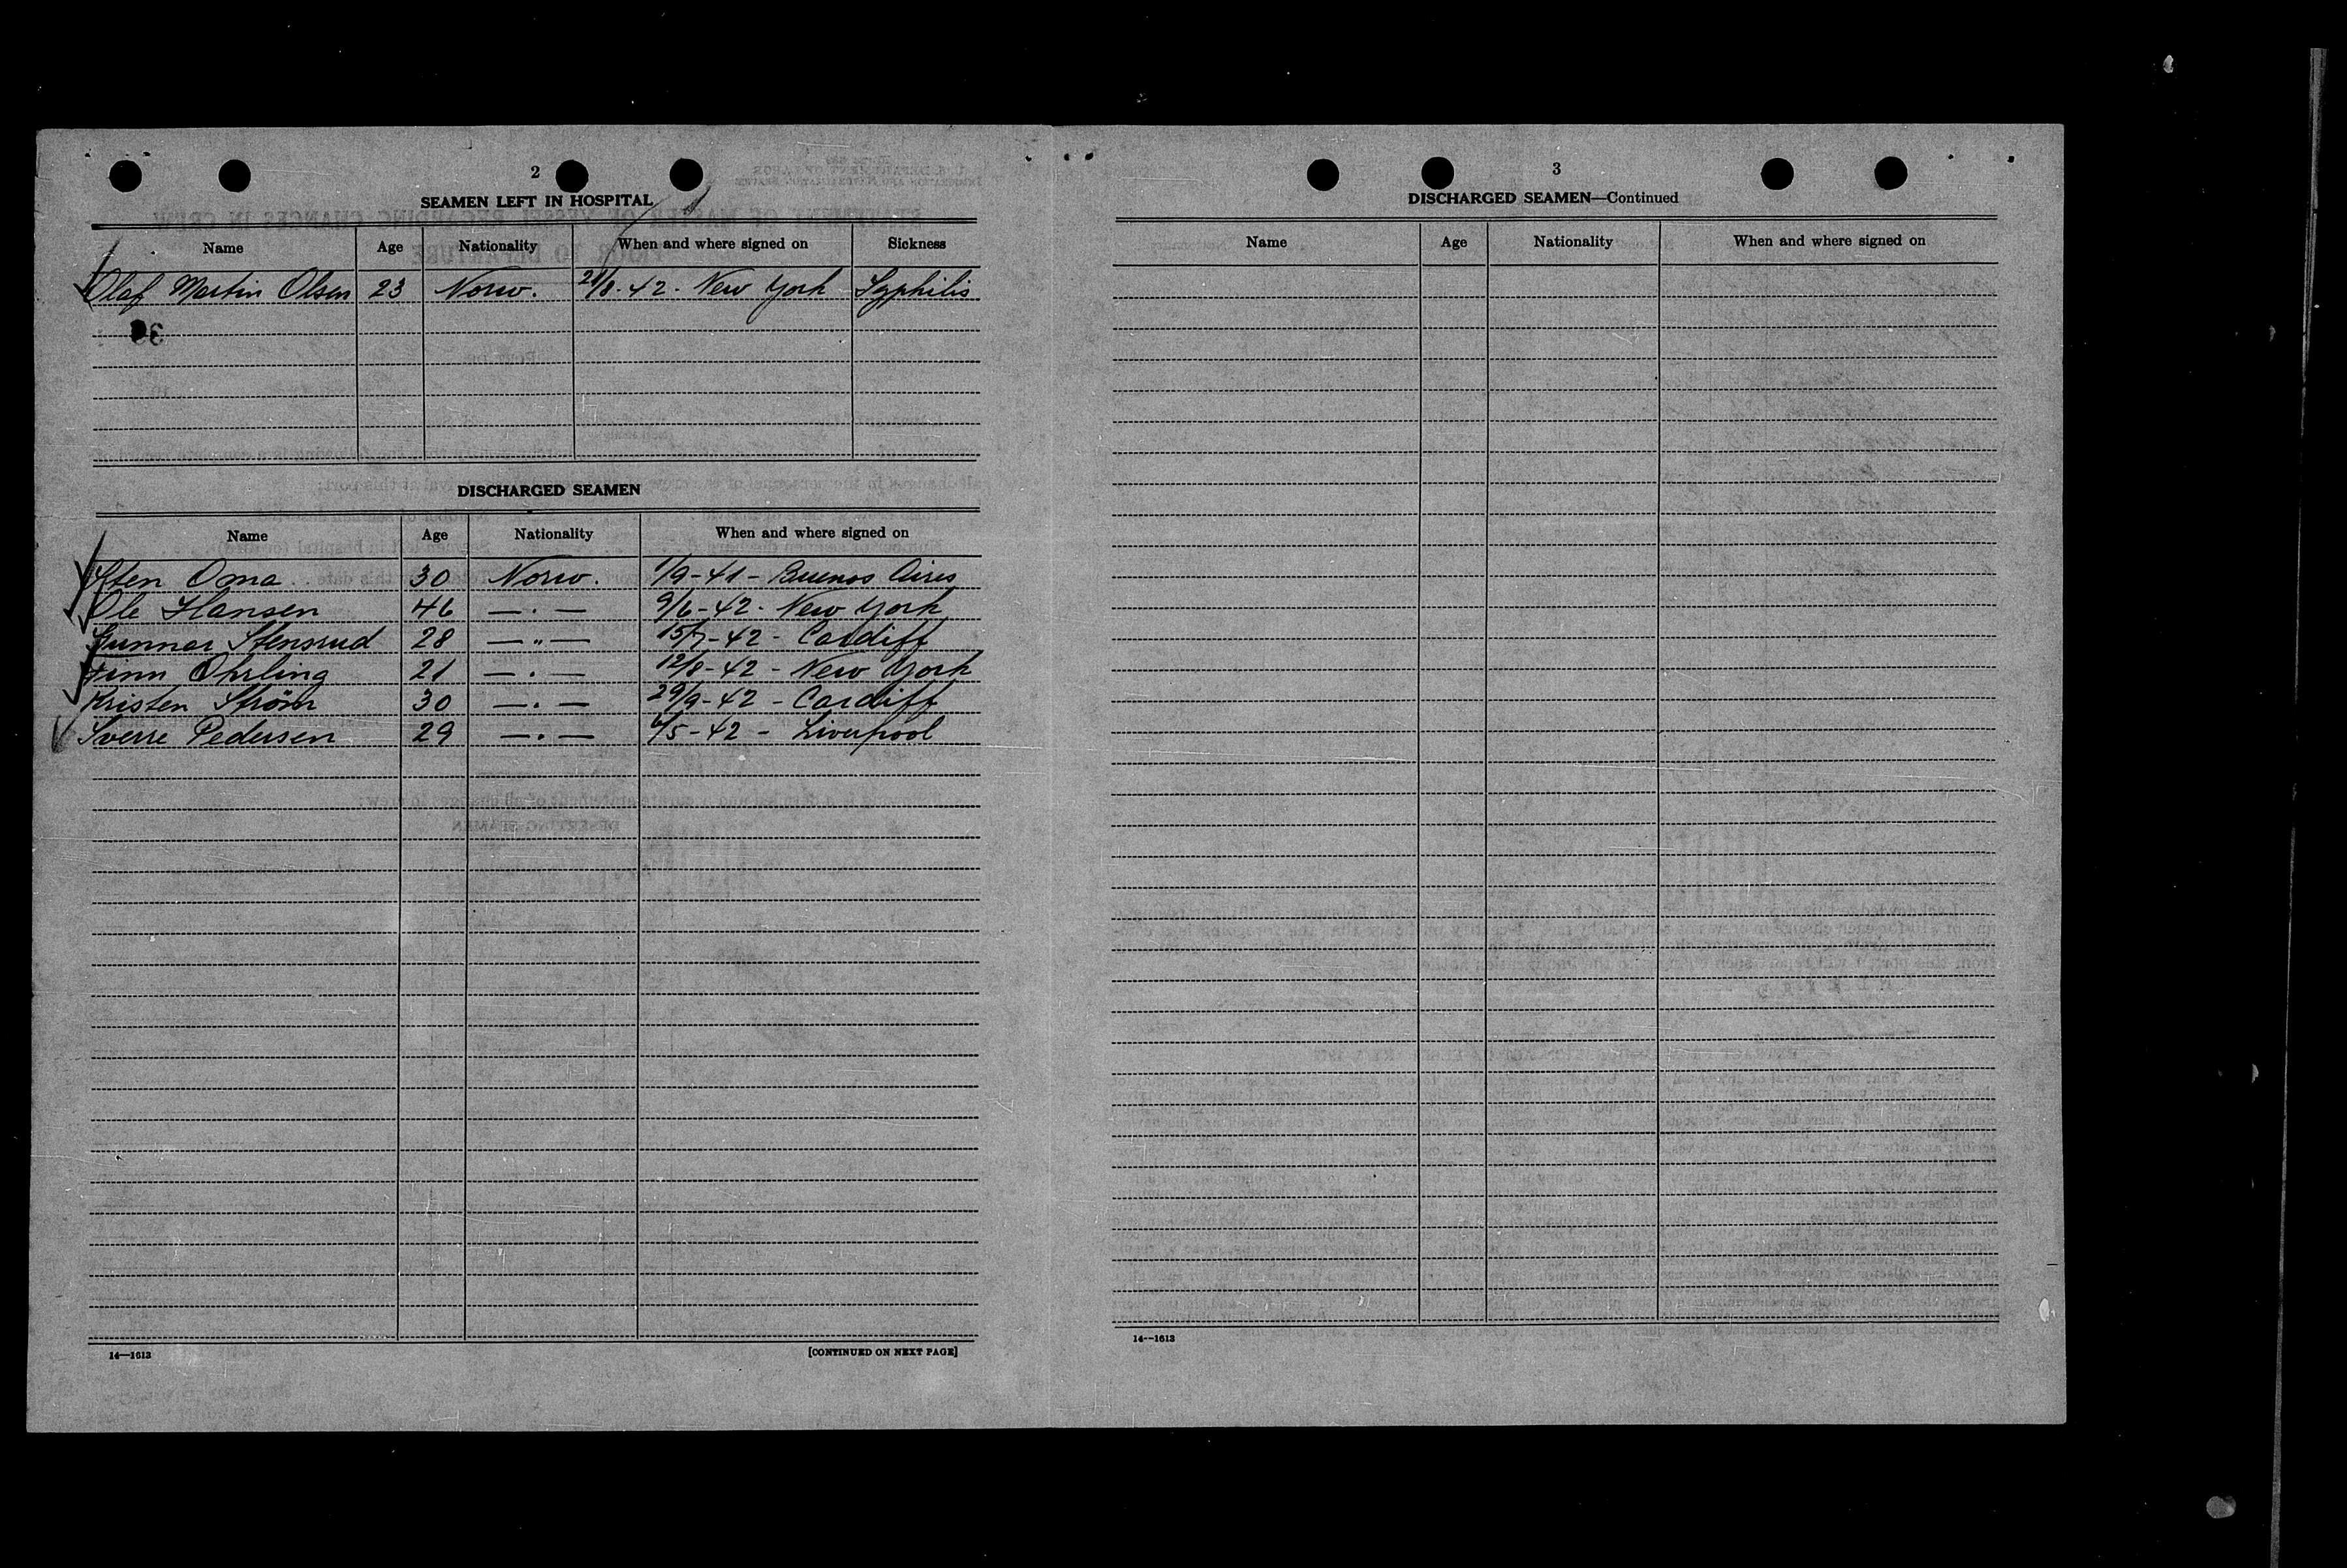 2
SEAMEN LEFT IN HOSPITAL
Name Age Nationality When and where signed on Sickness
Olaf Martin Olsen 23 Norw. 21/8-42- New York Syphilis
DISCHARGED SEAMEN
Name Age Nationality When and where signed on
Sten Oma 30 Norw. 1/9-41- Buenos Aires
Ole Hansen 46 —"— 9/6-42- New York
Gunnar Stensrud 28 —"— 15/7-42- Cardiff
Finn Ohrling 21 —"— 12/8-42- New York
Kristen Ström 30 —"— 29/9-42- Cardiff
Sverre Pedersen 29 —"— 6/5-42- Liverpool
14—1613 [CONTINUED ON NEXT PAGE]
3
DISCHARGED SEAMEN—Continued
Name Age Nationality When and where signed on
14—1613